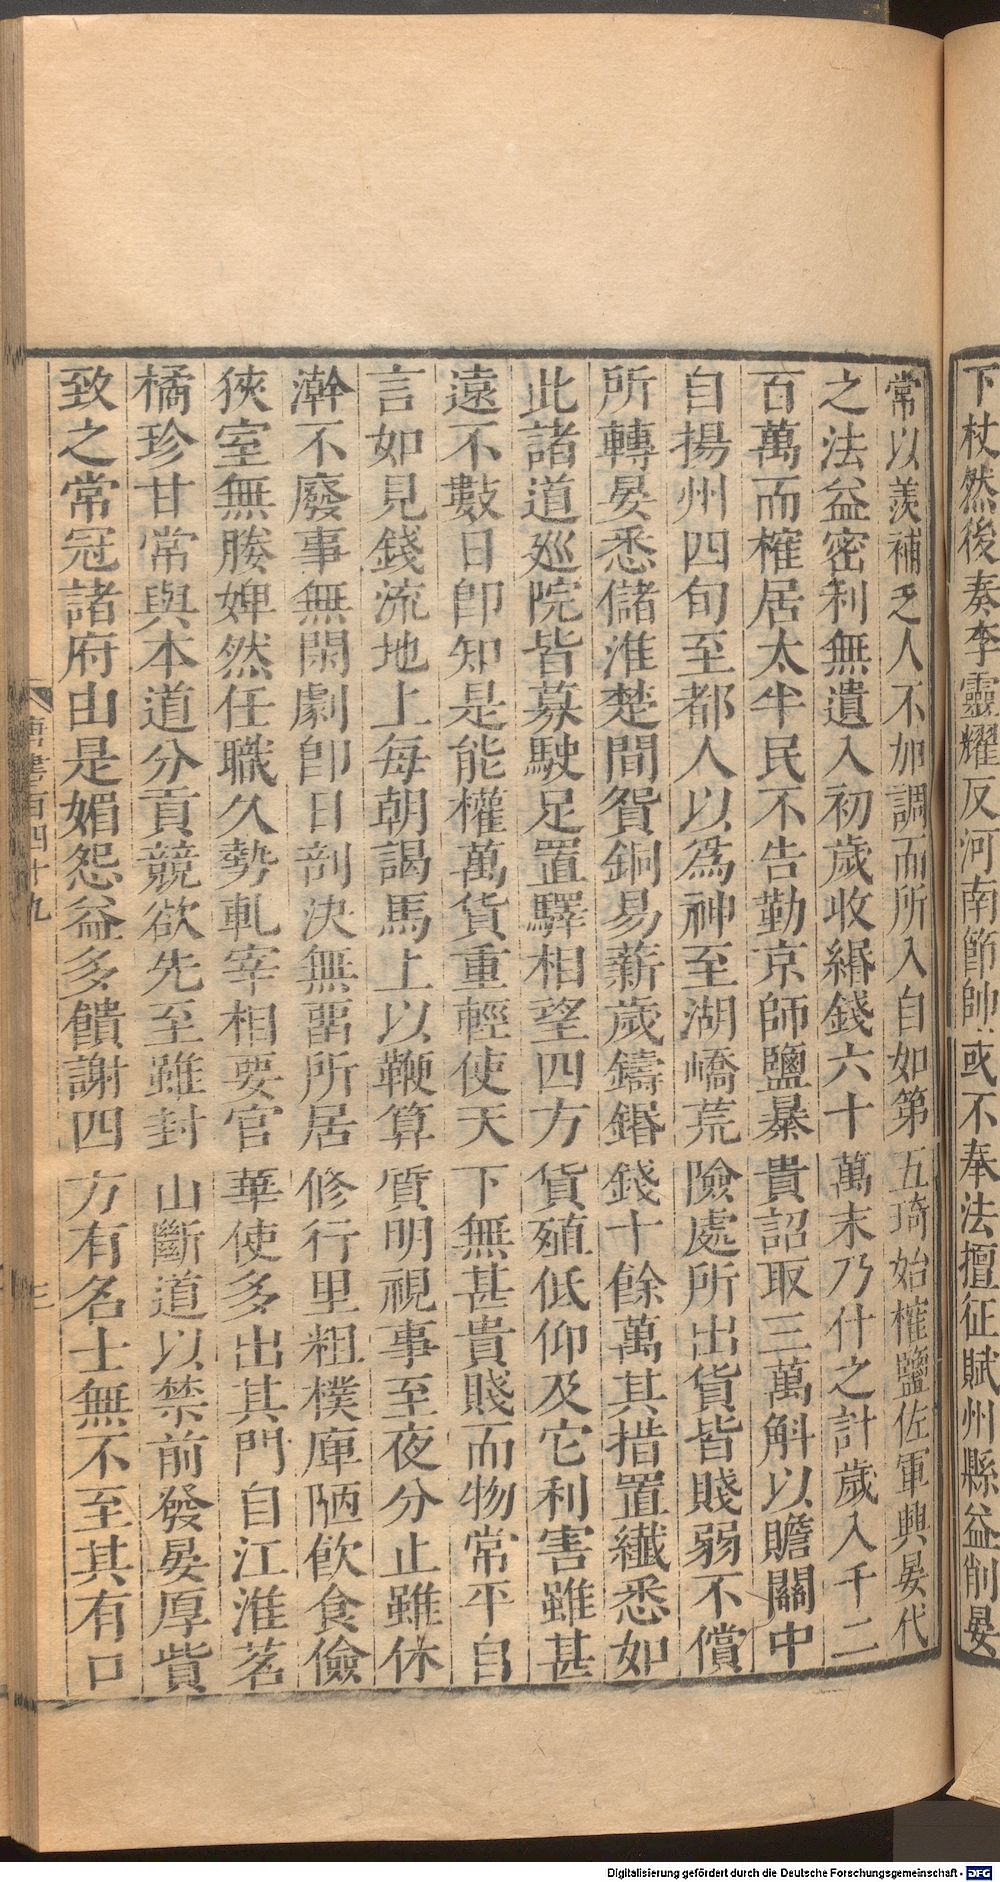 下杖然後奏李靈耀反河南節帥或不奉法擅征賦州縣益削晏
常以羨補乏人不加調而所入自如第五琦始榷鹽佐軍興晏代
之法益密利無遺入初歲收緡錢六十萬末乃什之計歲入千二
百萬而榷居太半民不告勤京師鹽暴貴詔取三萬斛以贍關中
自揚州四旬至都人以爲神至湖嶠荒險處所出貨皆賤弱不償
所轉晏悉儲淮楚間貿銅易薪歲鑄緡錢十餘萬其措置纖悉如
此諸道巡院皆募駛足置驛相望四方貨殖低仰及它利害雖甚
遠不數日即知是能權萬貨重輕使天下無甚貴賤而物常平自
言如見錢流地上每朝謁馬上以鞭算質明視事至夜分止雖休
澣不廢事無閑劇即日剖決無畱所居修行里粗樸庳陋飲食儉
狹室無媵婢然任職久勢軋宰相要官華使多出其門自江淮茗
橘珍甘常與本道分貢競欲先至雖封山斷道以禁前發晏厚貲
致之常冠諸府由是媢怨益多饋謝四方有名士無不至其有口
唐書百四十九
三
Digitalisierung gefördert durch die Deutsche Forschungsgemeinschaft - DFG